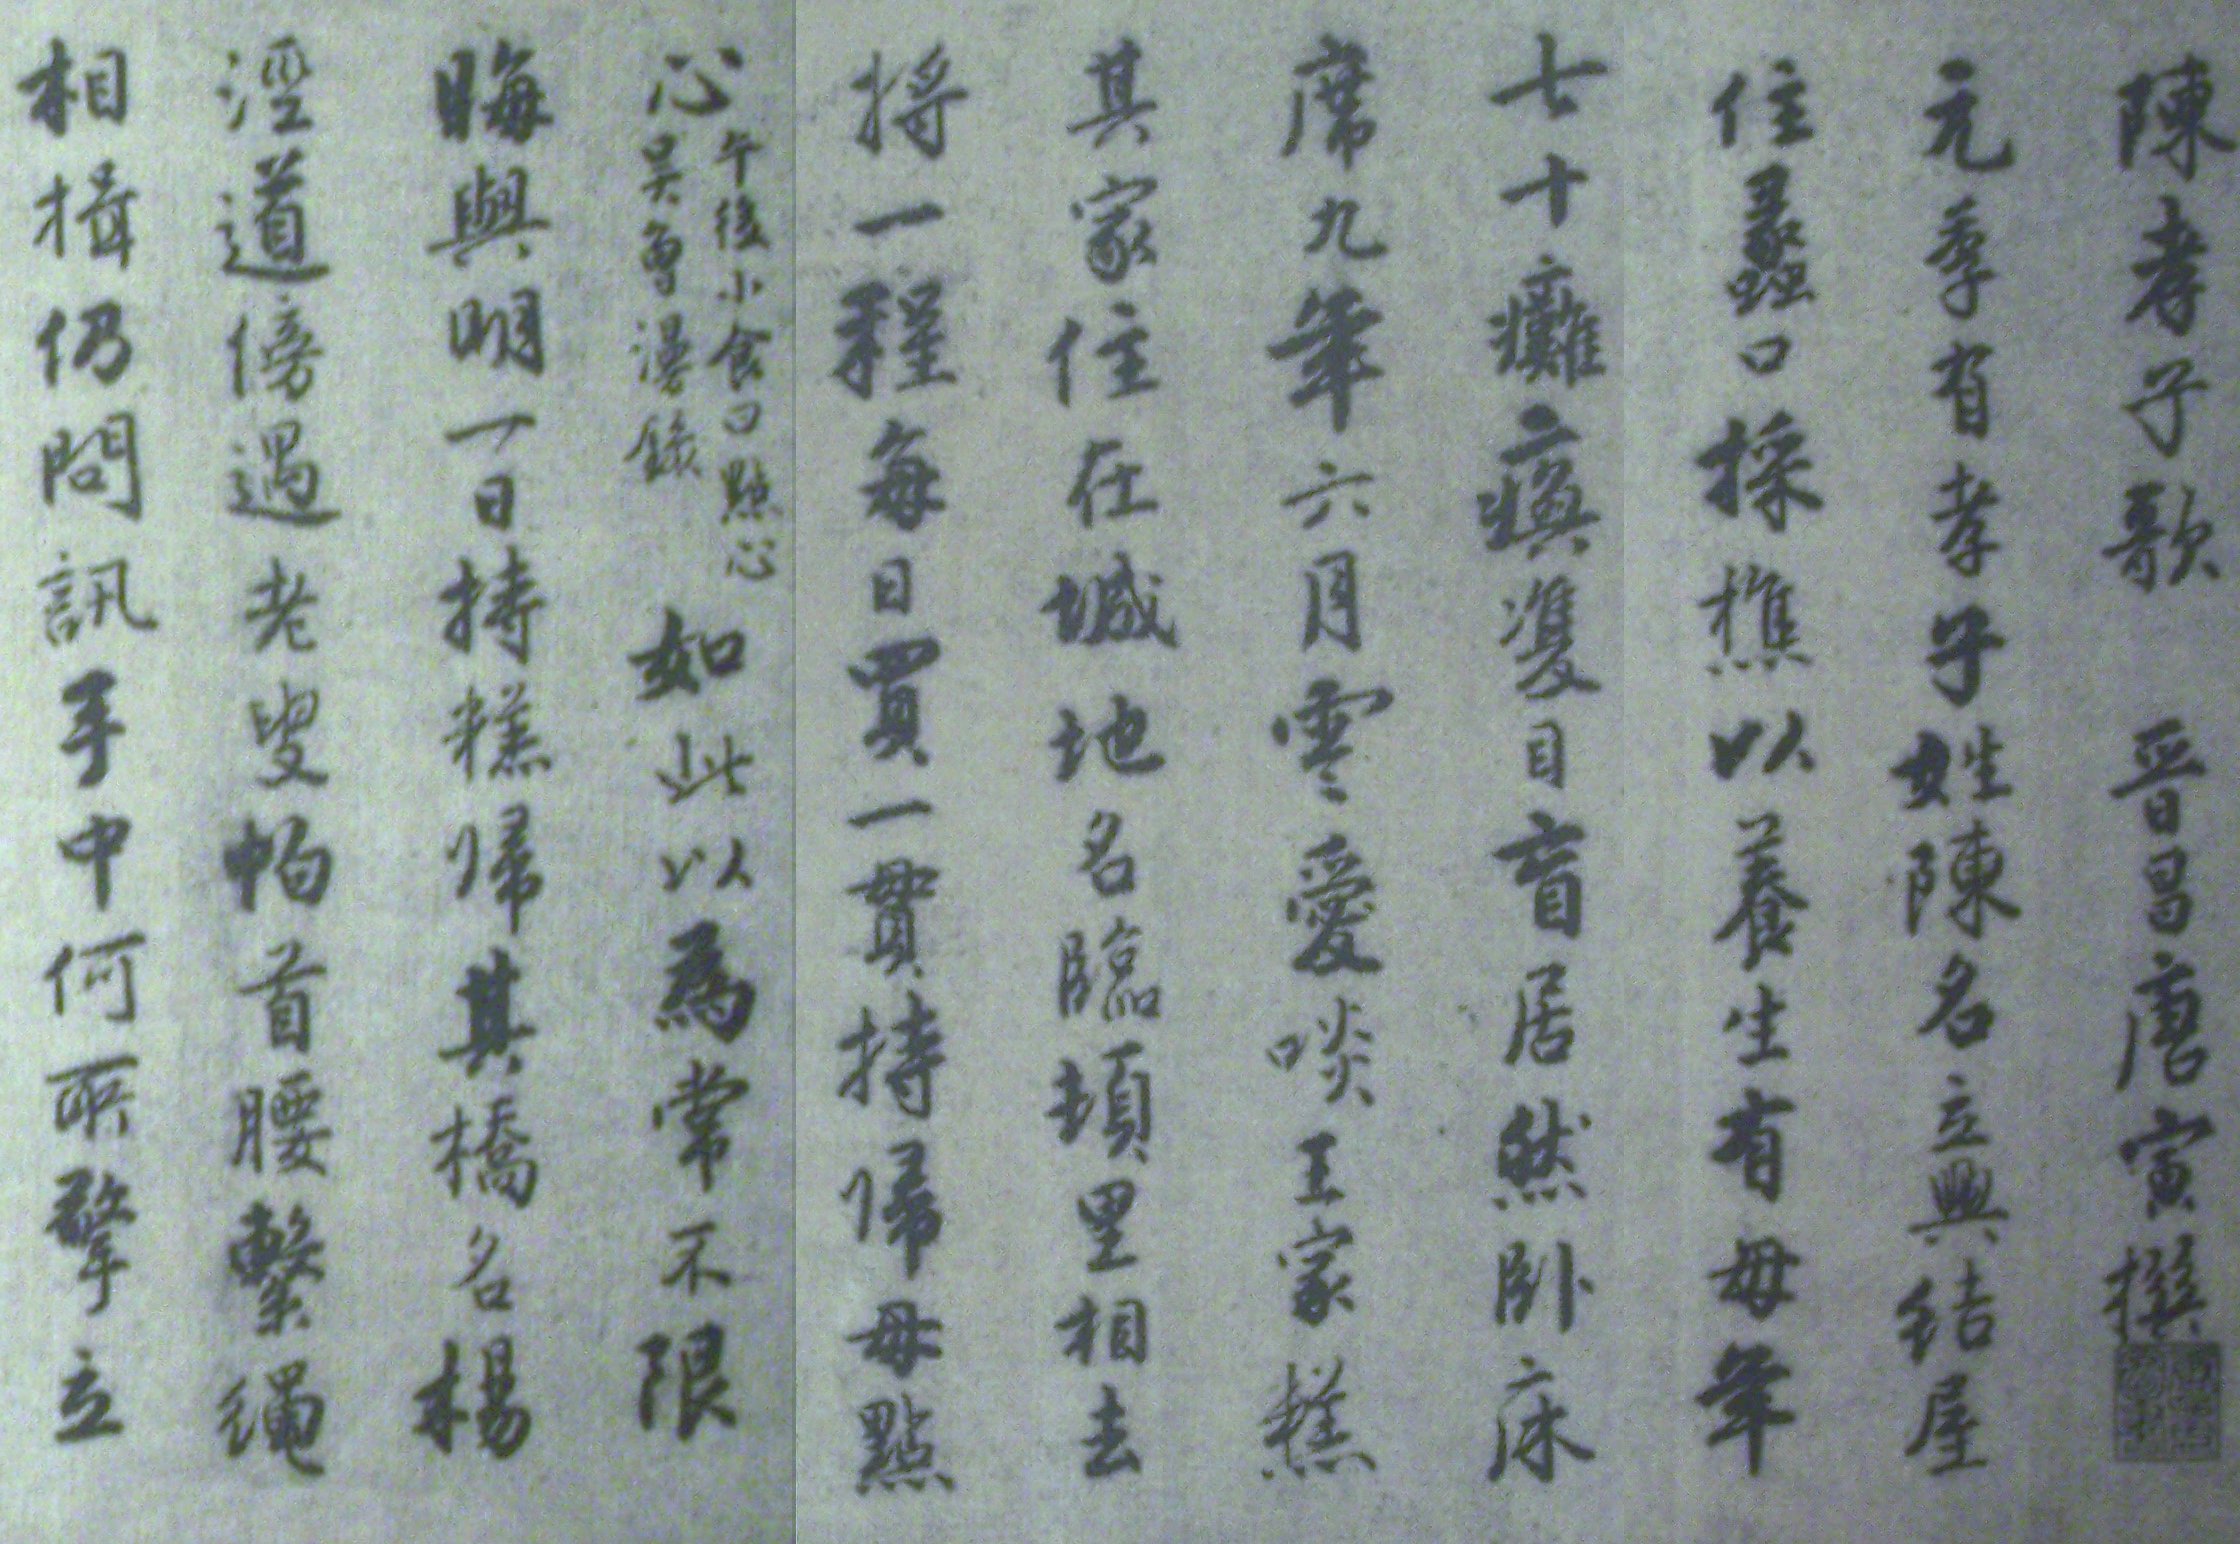 陳孝子歌　晉昌唐寅撰
元季有孝子姓陳名立興結屋
住蠡口採樵以養生有母年
七十癱瘓雙目盲居然臥床
席九年六月零愛啖王家糕
其家住在城地名臨頓里相去
將一程每日買一貫持歸母點
心午後小食曰點心
吳曾漫錄如此以為常不限
晦與明一日持糕歸其橋名楊
涇道傍遇老叟帕首腰繫繩
相揖仍問訊手中何所擎立